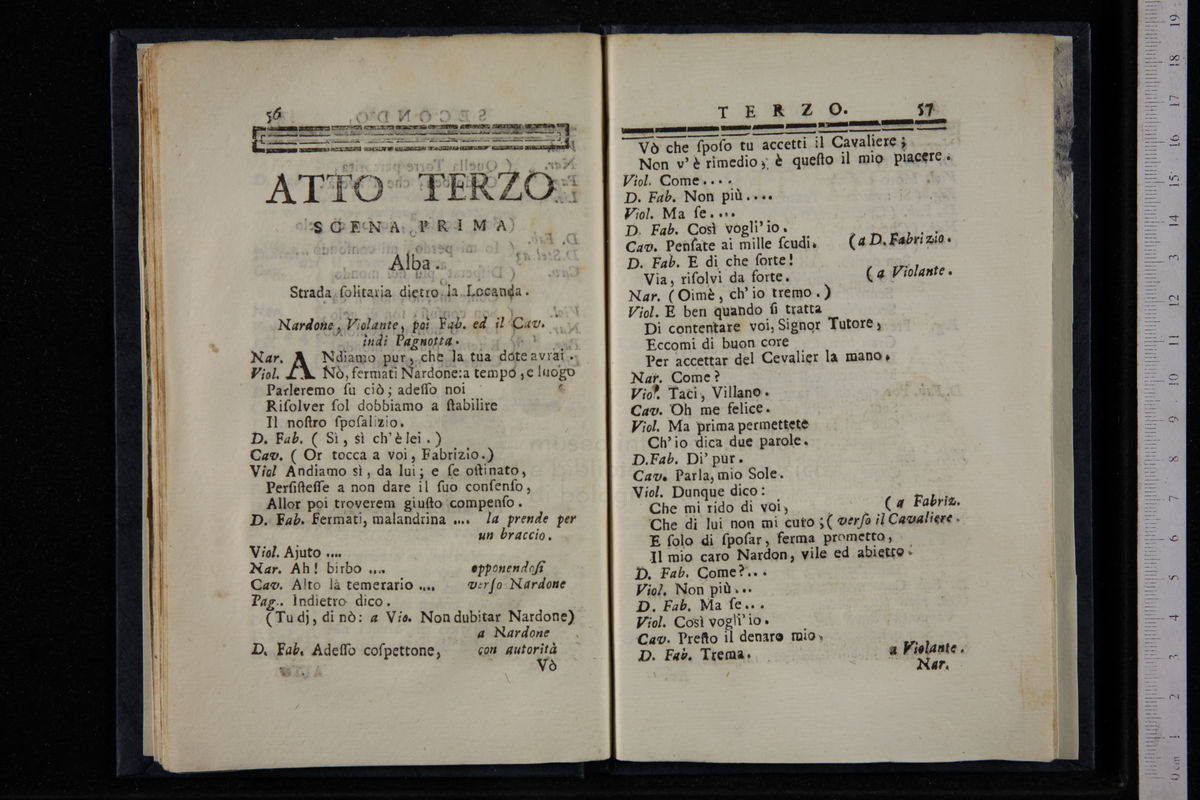 56
ATTO TERZO
SCENA PRIMA
Alba.
Strada ſolitaria dietro la Locanda.
Nardone, Violante, poi Fab. ed il Cav.
indi Pagnotta.
Nar. ANdiamo pur, che la tua dote avrai.
Viol. Nò, fermati Nardone: a tempo, e luogo
Parleremo ſu ciò; adeſſo noi
Riſolver ſol dobbiamo a ſtabilire
Il noſtro ſpoſalizio.
D. Fab. ( Sì, sì ch'è lei. )
Cav. ( Or tocca a voi, Fabrizio.)
Viol Andiamo sì, da lui; e ſe oſtinato,
Perſiſteſſe a non dare il ſuo conſenſo,
Allor poi troverem giuſto compenſo.
D. Fab. Fermati, malandrina .... la prende per
un braccio.
Viol. Ajuto ....
Nar. Ah! birbo .... opponendoſi
Cav. Alto là temerario .... verſo Nardone
Pag. Indietro dico.
(Tu dj, di nò: a Vio. Non dubitar Nardone)
a Nardone
D. Fab. Adeſſo coſpettone, con autorità
Vò
TERZO. 57
Vò che ſpoſo tu accetti il Cavaliere;
Non v'è rimedio, è queſto il mio piacere.
Viol. Come....
D. Fab. Non più....
Viol. Ma ſe....
D. Fab. Così vogli'io.
Cav. Penſate ai mille ſcudi. (a D. Fabrizio.
D. Fab. E di che ſorte!
Via, riſolvi da forte. (a Violante.
Nar. (Oimè, ch'io tremo.)
Viol. E ben quando ſi tratta
Di contentare voi, Signor Tutore,
Eccomi di buon core
Per accettar del Cevalier la mano.
Nar. Come?
Viol. Taci, Villano.
Cav. Oh me felice.
Viol. Ma prima permettete
Ch'io dica due parole.
D. Fab. Di' pur.
Cav. Parla, mio Sole.
Viol. Dunque dico:
Che mi rido di voi, (a Fabriz.
Che di lui non mi cuto; (verſo il Cavaliere.
E ſolo di ſpoſar, ferma prometto,
Il mio caro Nardon, vile ed abietto.
D. Fab. Come?...
Viol. Non più...
D. Fab. Ma ſe...
Viol. Così vogli'io.
Cav. Preſto il denaro mio,
D. Fab. Trema. a Violante.
Nar.